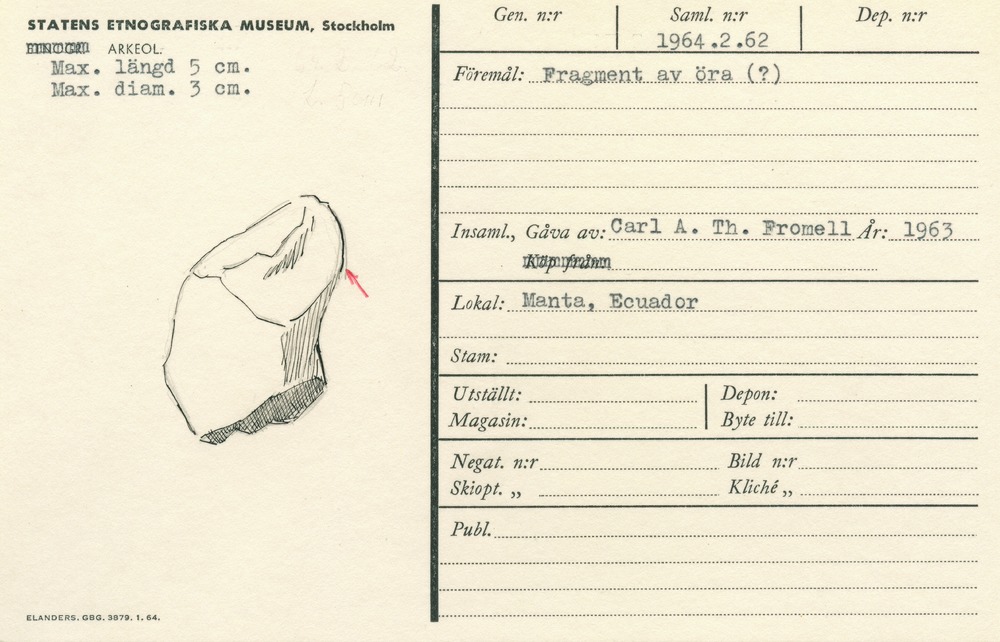 STATENS ETNOGRAFISKA MUSEUM, Stockholm
ETNOGR. ARKEOL.
Max. längd 5 cm.
Max. diam. 3 cm.
ELANDERS. GBG. 3879. 1. 64.
Gen. n:r Saml. n:r Dep. n:r
1964.2.62
Föremål: Fragment av öra (?)
Insaml., Gåva av: Carl A. Th. Fromell År: 1963
Köp från
Lokal: Manta, Ecuador
Stam:
Utställt: Depon:
Magasin: Byte till:
Negat. n:r Bild n:r
Skiopt. „ Kliché „
Publ.